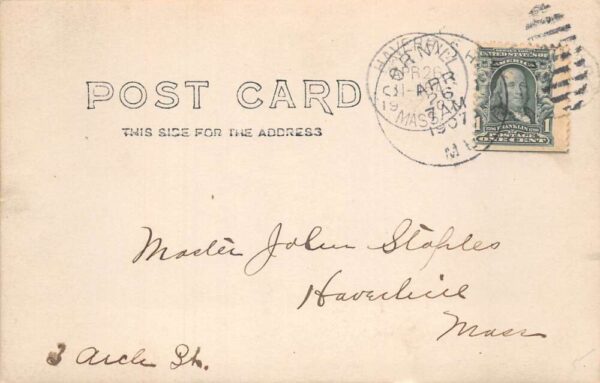 POST CARD
THIS SIDE FOR THE ADDRESS
HAVERHILL
APR 26
MASS.
APR
26
7 AM
1907
UNITED STATES OF AMERICA
FRANKLIN
1 POSTAGE 1
ONE CENT
Master John Staples
Haverhill
Mass
3 Arch St.